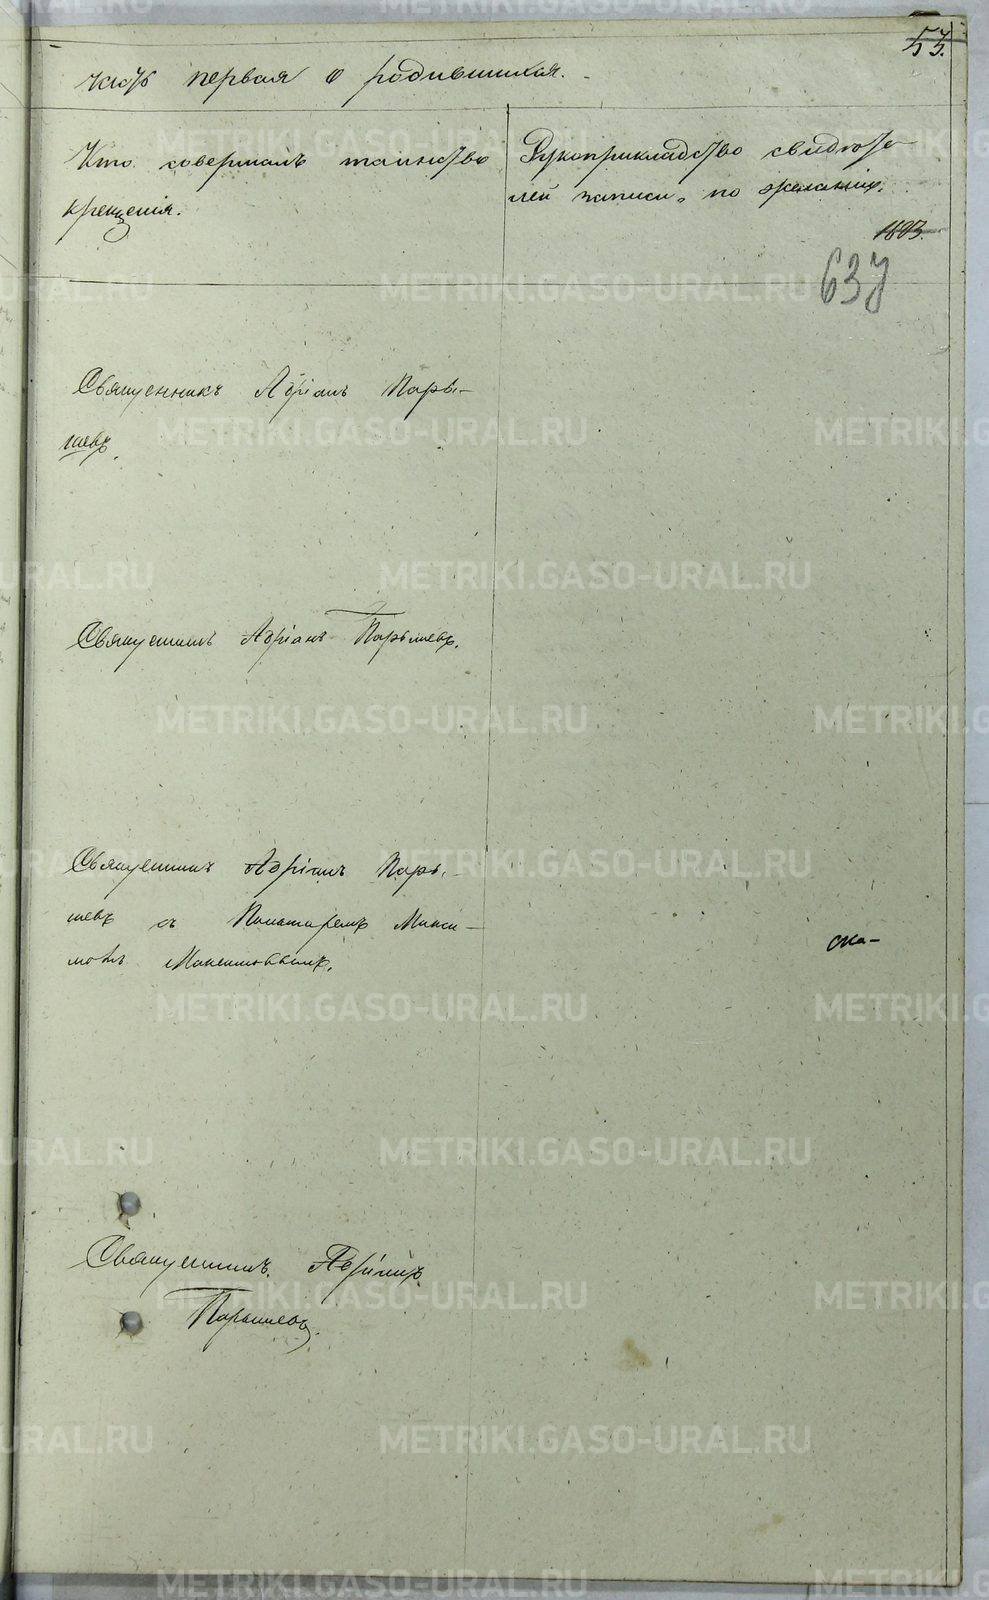 53.
часть первая о родившихся.
Кто совершалъ таинство
крещенія.
Рукоприкладство свидѣте-
лей записи, по желанію.
1893.
637
Священникъ Адріанъ Пары-
шевъ.
Священникъ Адріанъ Парышевъ.
Священникъ Адріанъ Пары-
шевъ съ Пономаремъ Макси-
момъ Максимовымъ.
ска-
Священникъ Адріанъ
Парышевъ.
METRIKI.GASO-URAL.RU